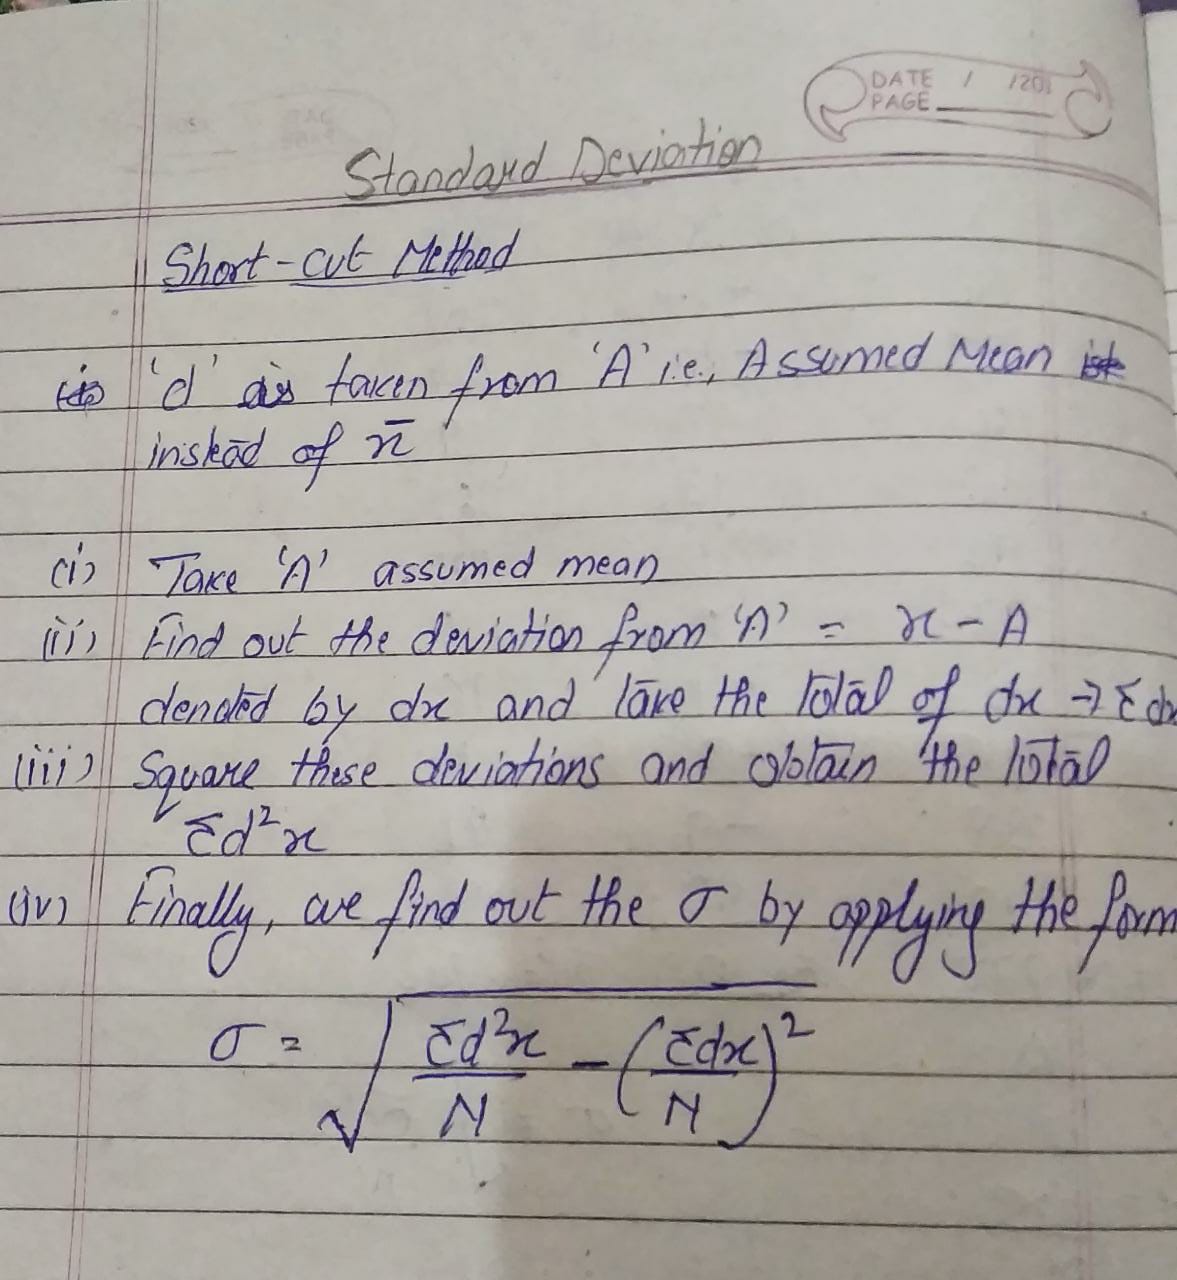 DATE / /20
PAGE
Standard Deviation
Short-cut Method
'd' is taken from 'A' i.e., Assumed Mean
instead of x̄
(i) Take 'A' assumed mean
(ii) Find out the deviation from 'A' = x - A
denoted by dx and take the total of dx → Σdx
(iii) Square these deviations and obtain the total
Σd²x
(iv) Finally, we find out the σ by applying the form
σ = √(Σd²x/N - (Σdx/N)²)